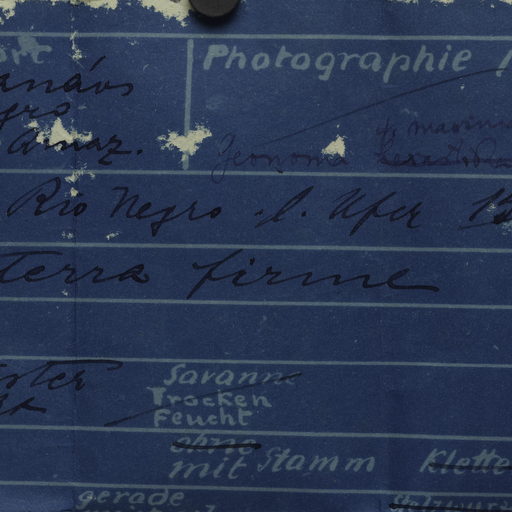 ort Photographie
anáos
gro
Amaz.
Geonoma
Rio Negro . l. Ufer 13
terra firme
ster Savanne
Trocken
Feucht
ohne
mit Stamm Klette
gerade Stelzwurz